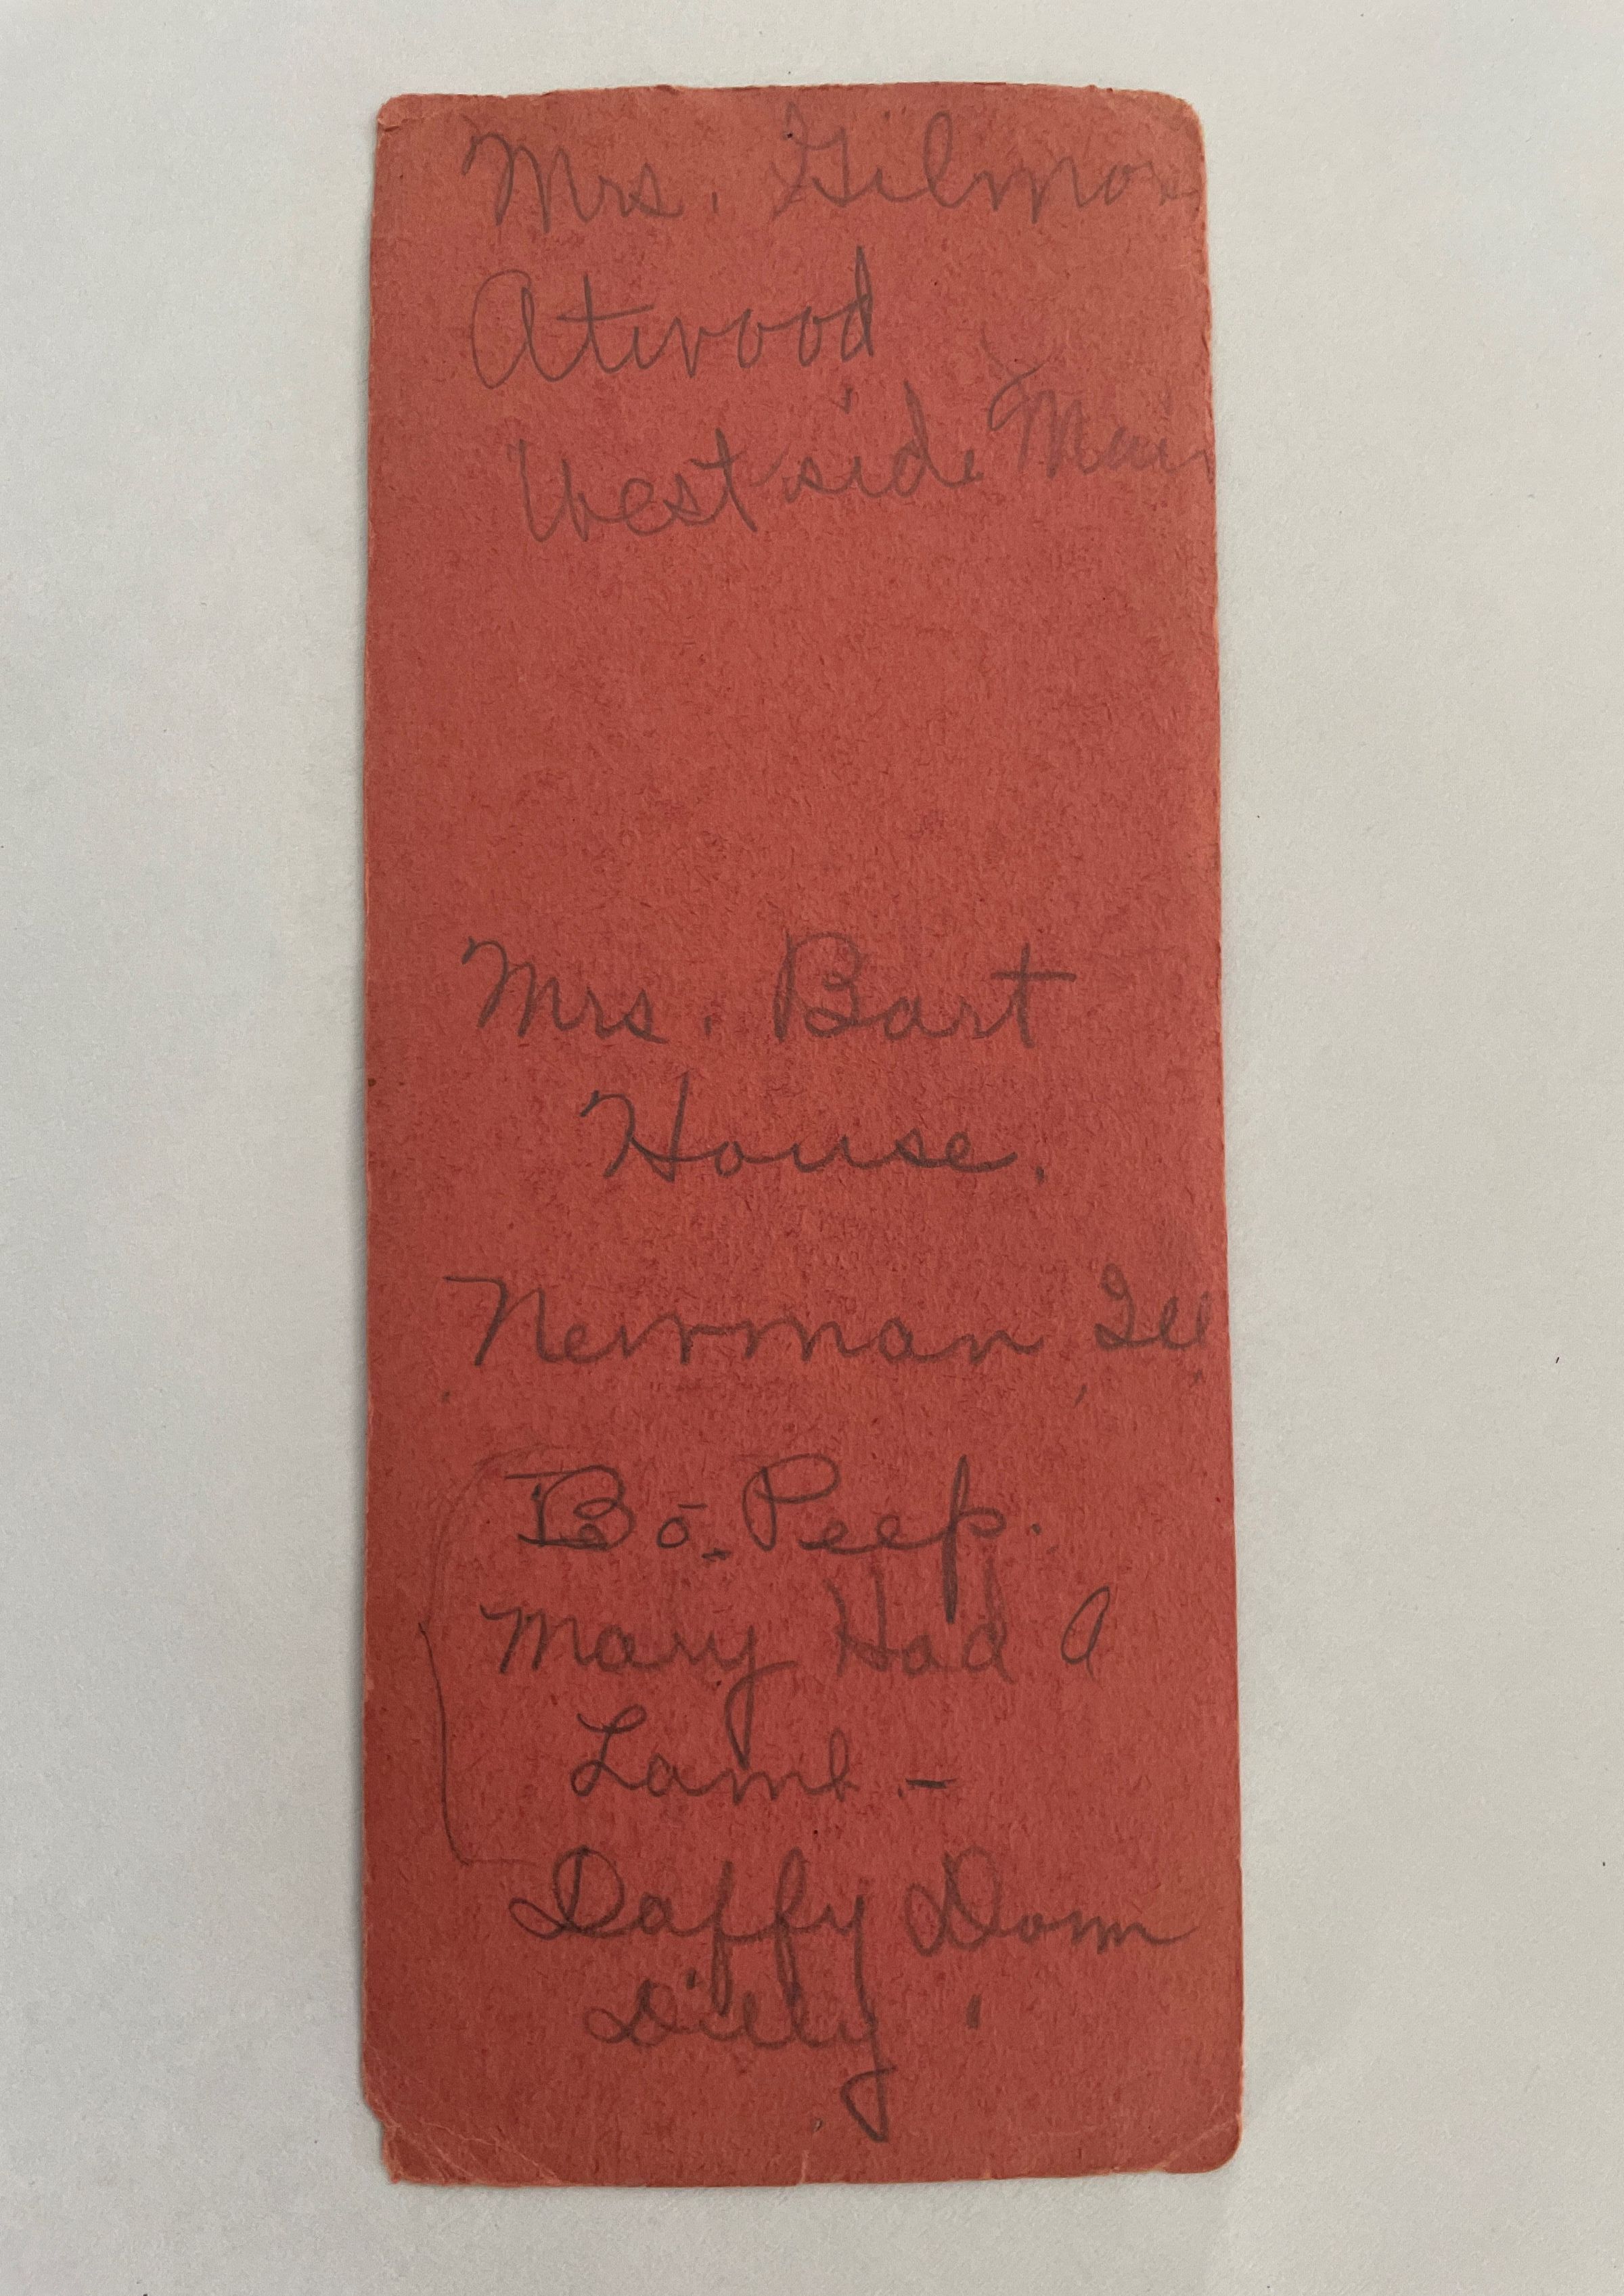 Mrs. Gilmore
Atwood
West side Main
Mrs. Bart
House.
Newman Ill
Bo-Peep.
Mary Had a
Lamb -
Daffy Down
Dilly